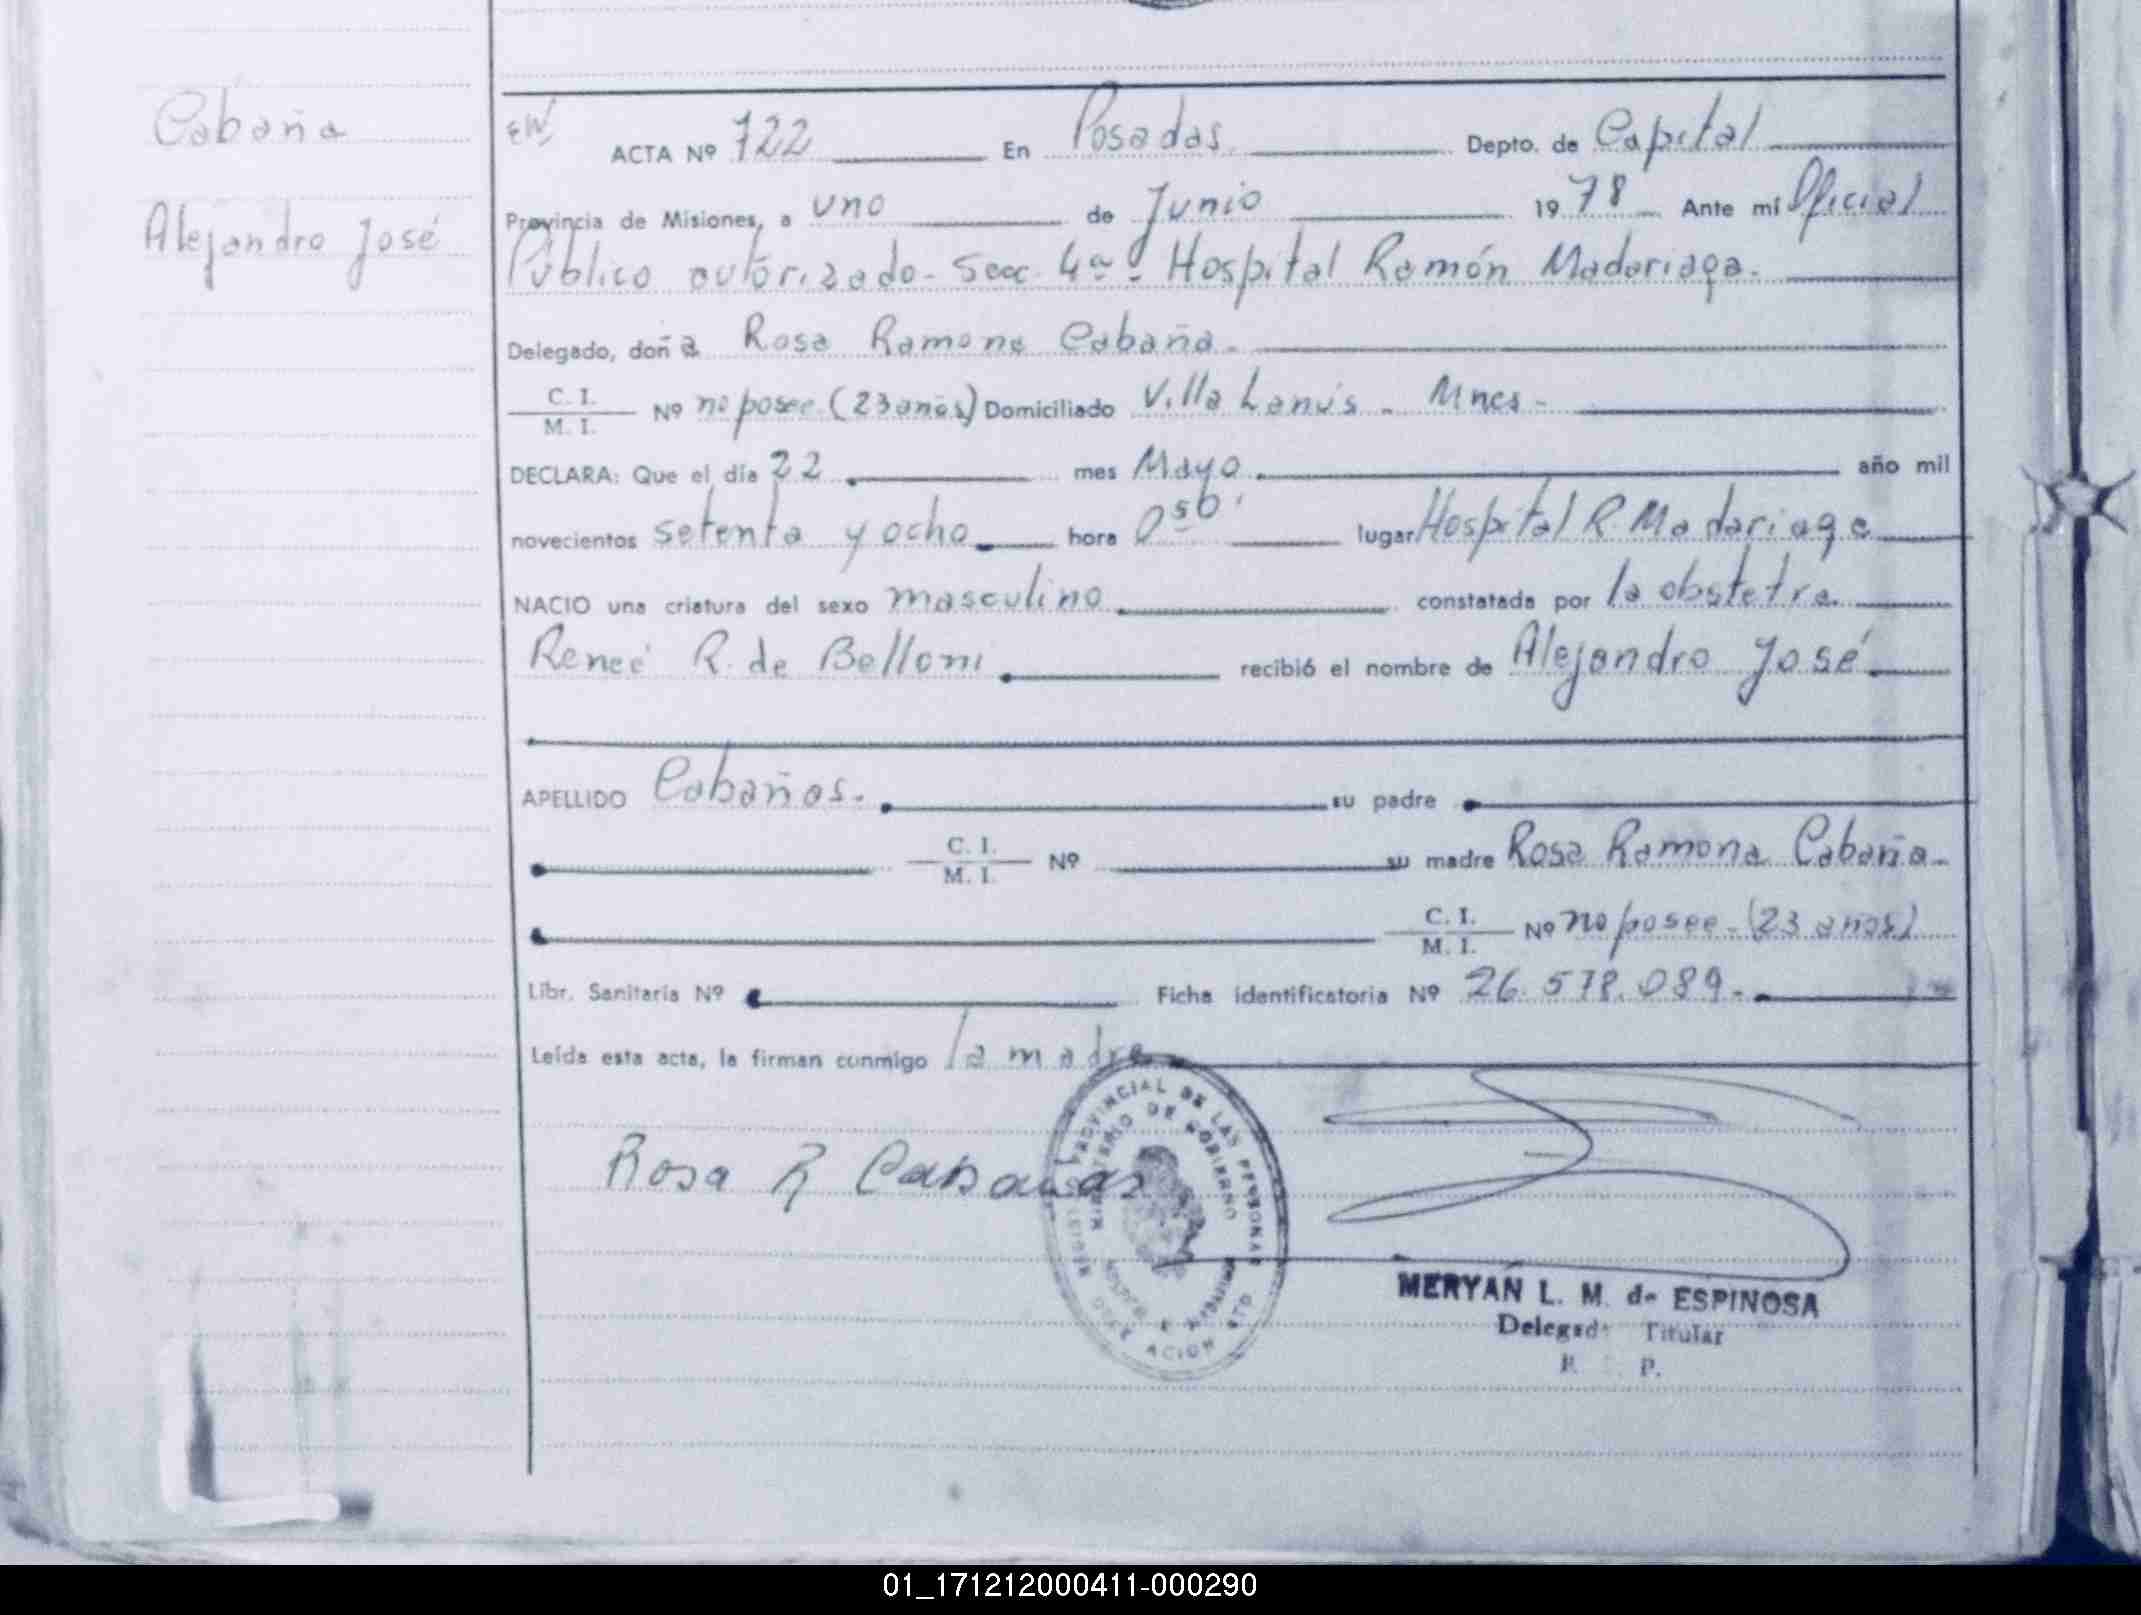 Cabaña
Alejandro José
EW
ACTA Nº 722 En Posadas Depto. de Capital
Provincia de Misiones, a uno de Junio 1978 Ante mí Oficial
Público autorizado - Secc. 4ª - Hospital Ramón Madariaga.
Delegado, doña Rosa Ramona Cabaña.
C. I.
M. I. Nº no posee (23 años) Domiciliado Villa Lanús - Mnes -
DECLARA: Que el día 22 mes Mayo año mil
novecientos setenta y ocho hora 0 50' lugar Hospital R. Madariaga
NACIO una criatura del sexo masculino constatada por la obstetra
Reneé R. de Belloni recibió el nombre de Alejandro José
APELLIDO Cabañas. su padre
C. I.
M. I. Nº su madre Rosa Ramona Cabaña
C. I.
M. I. Nº no posee - (23 años)
Libr. Sanitaria Nº Ficha identificatoria Nº 26.578.089.-
Leída esta acta, la firman conmigo la madre
Rosa R Cabañas
PROVINCIAL DE LAS PERSONAS
MINISTERIO DE GOBIERNO
MERYAN L. M. de ESPINOSA
Delegada Titular
R. P.
01_171212000411-000290